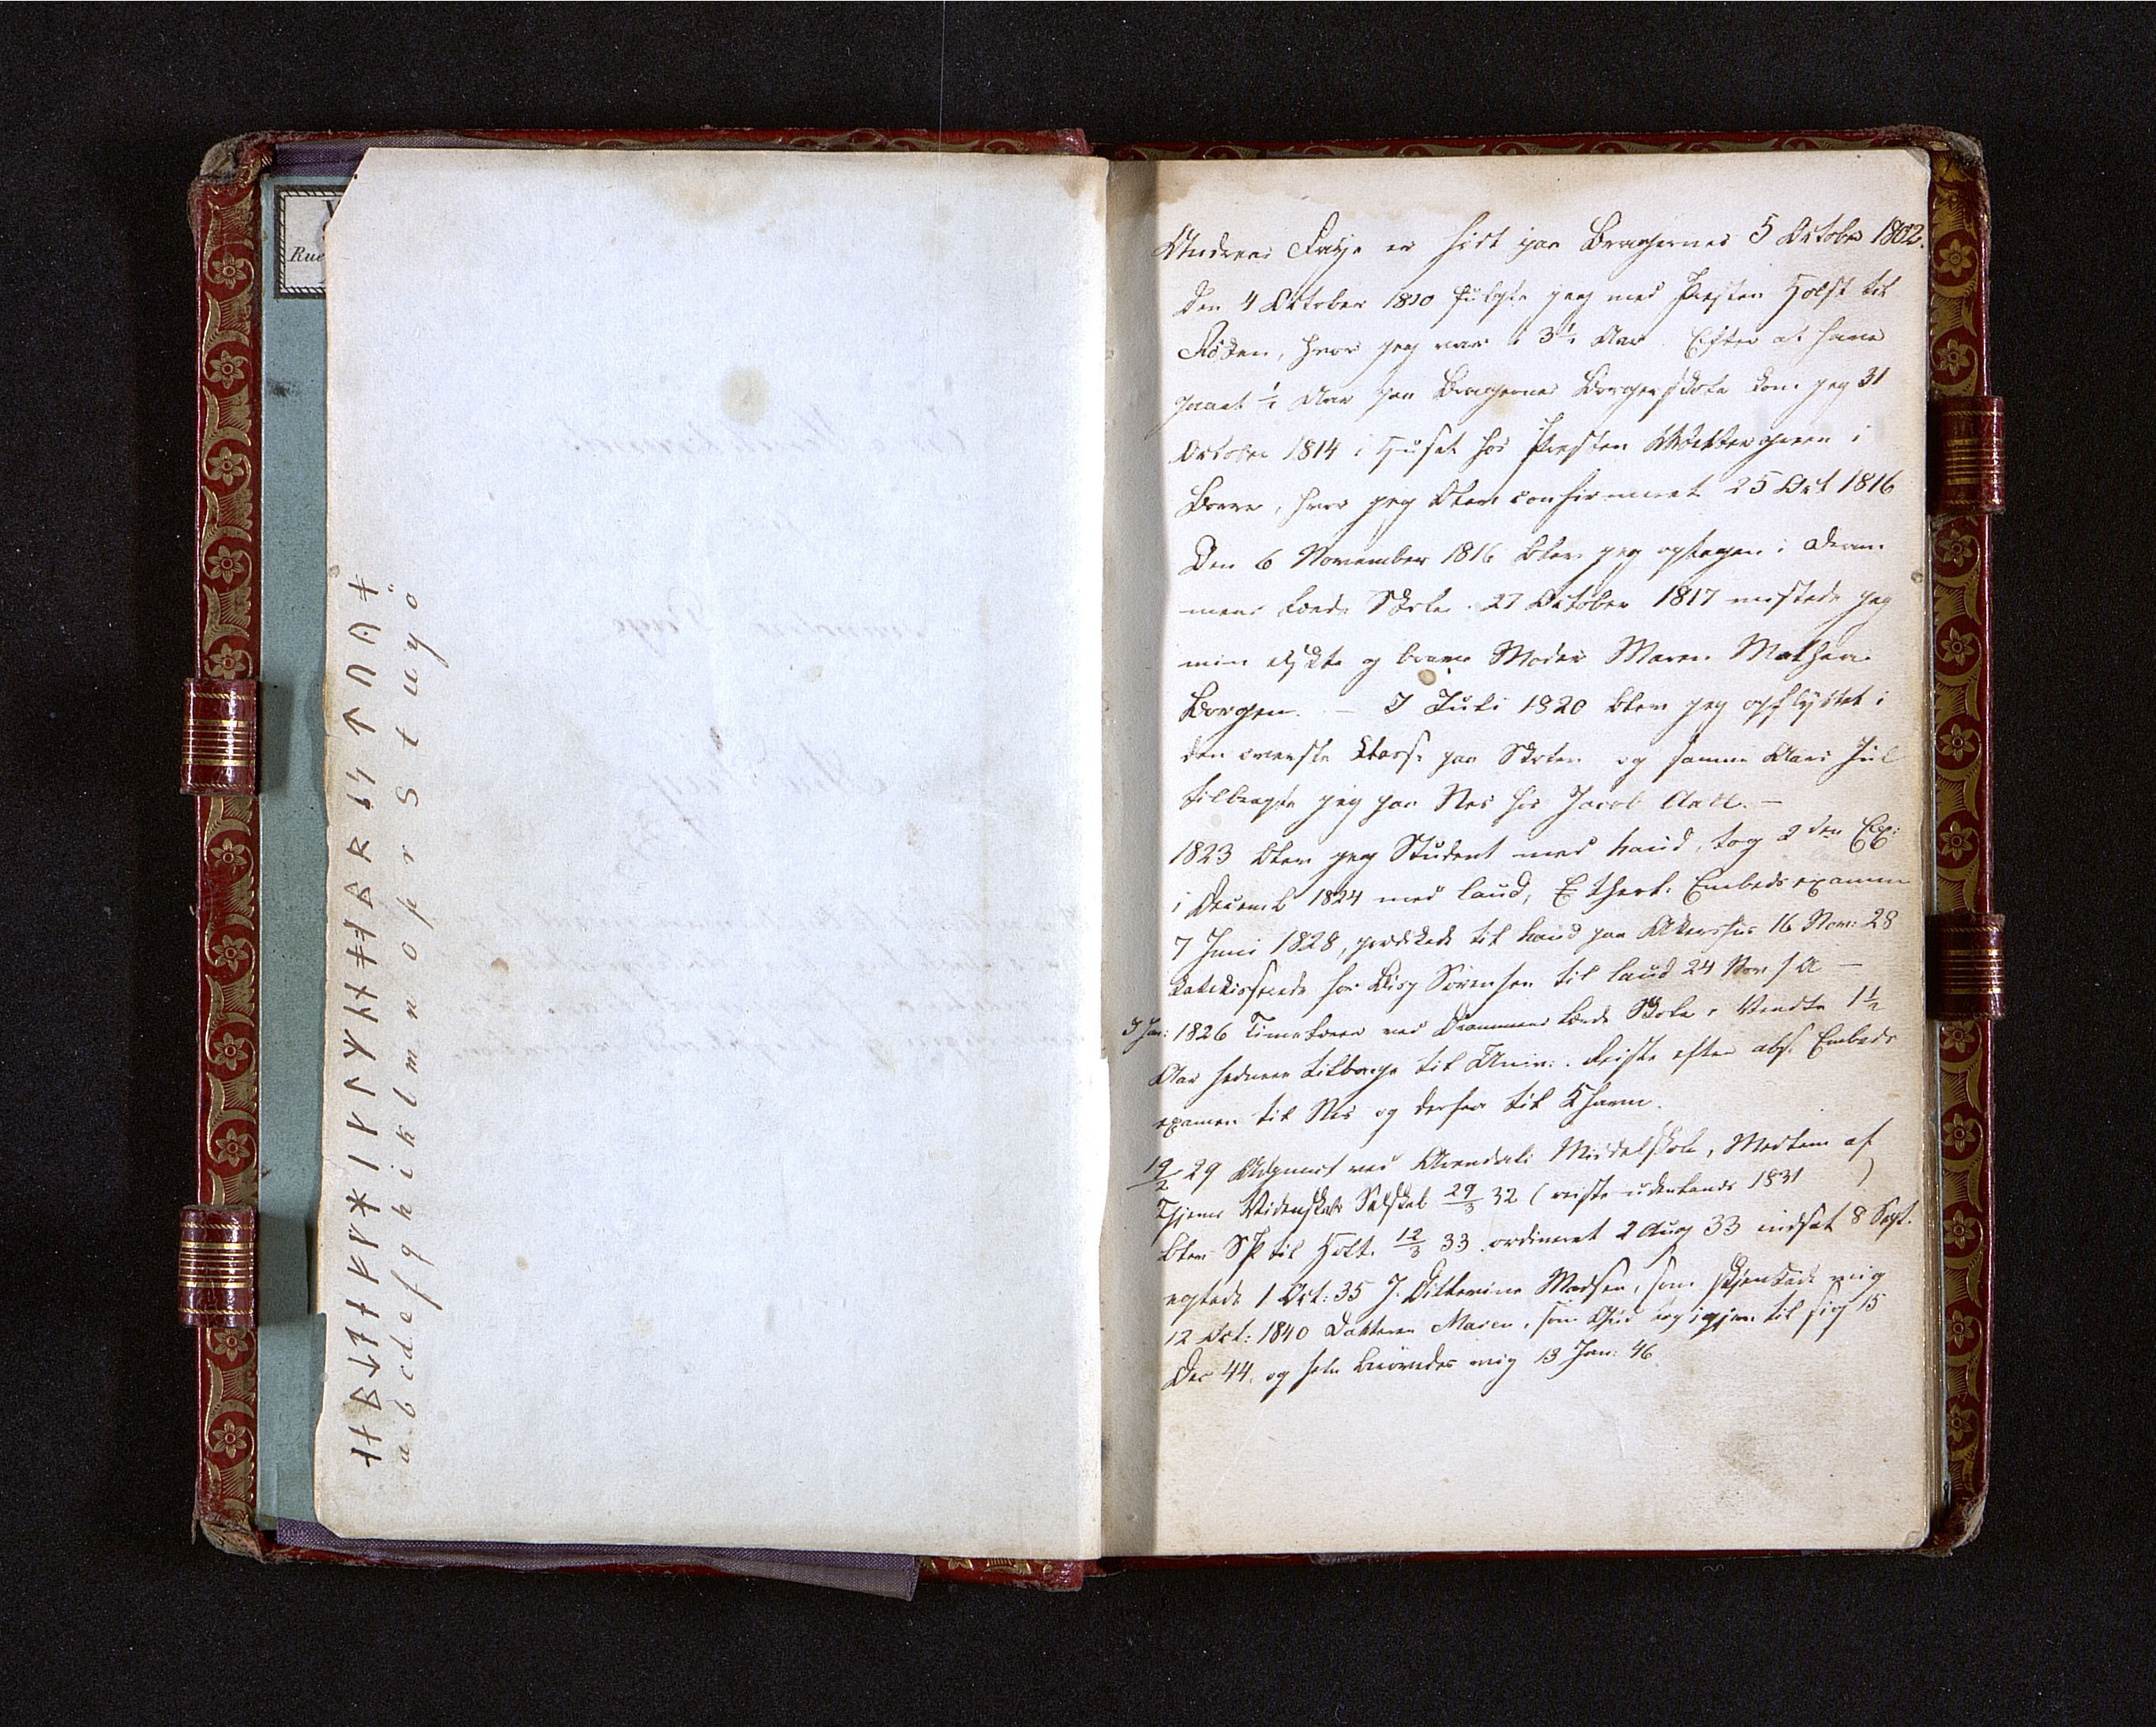 Rue
ᛆ ᛒ ᛍ ᛏ ᚦ ᚠ ᚵ ᚼ ᛁ ᚴ ᛚ ᛘ ᚿ ᚮ ᛔ ᚱ ᛋ ᛏ ᚢ ᚤ ᚯ
a b c d e f g h i k l m n o p r S t u y ö
Andreas Faye er født paa Bragernes 5 October 1802.
Den 4 Oktober 1810 fulgte jeg med Presten Holst til
Röken, hvor jeg var i 3½ Aar. Efter at have
gaaet ½ Aar paa Bragernes Borgerskole kom jeg 31
October 1814 i Huset hos Presten Wettergreen i
hvor jeg blev confirmeret 25 Oct 1816
Den 6 November 1816 blev jeg optagen i Dram
mens lærde Skole. 27 October 1817 mistede jeg
min elskte og brave Moder Maren Mathea
Borgen. – I Juli 1820 blev jeg opflyttet i
den överste Klasse paa Skolen og samme Aars Jul
tilbragte jeg paa Nes hos Jacob Aall. –
1823 blev jeg Student med haud, tog 2den Ex:
i Decemb 1824 med laud, theol. Embedsexamen
7 Juni 1828, prædikede til haud paa Akershus 16 Nov: 28
Katekiserede for Bisp Sörensen til laud 24 Nov s A –
3 Jan: 1826 Timelærer ved Drammens lærde Skole. Vendte 1½
Aar sednere tilbage til Univ:. Reiste efter abs. Embeds
examen til Nes og derfra til Khavn.
19/2 29 Adjunct ved Arendals Middelskole, Medlem af
Thjems Videnskabs Selskab 29/3 32 (reiste udenlands 1831 )
blev SP til Holt. 12/3 33. ordineret 2 Aug 33 indsat 8 Sept.
egtede 1 Oct: 35 J. Ditlevine Madsen, som skjenkede mig
12 Oct: 1840 Datteren Maren, som Gud tog igjen til sig 15
Dec 44, og selv berövedes mig 13 Jan: 46